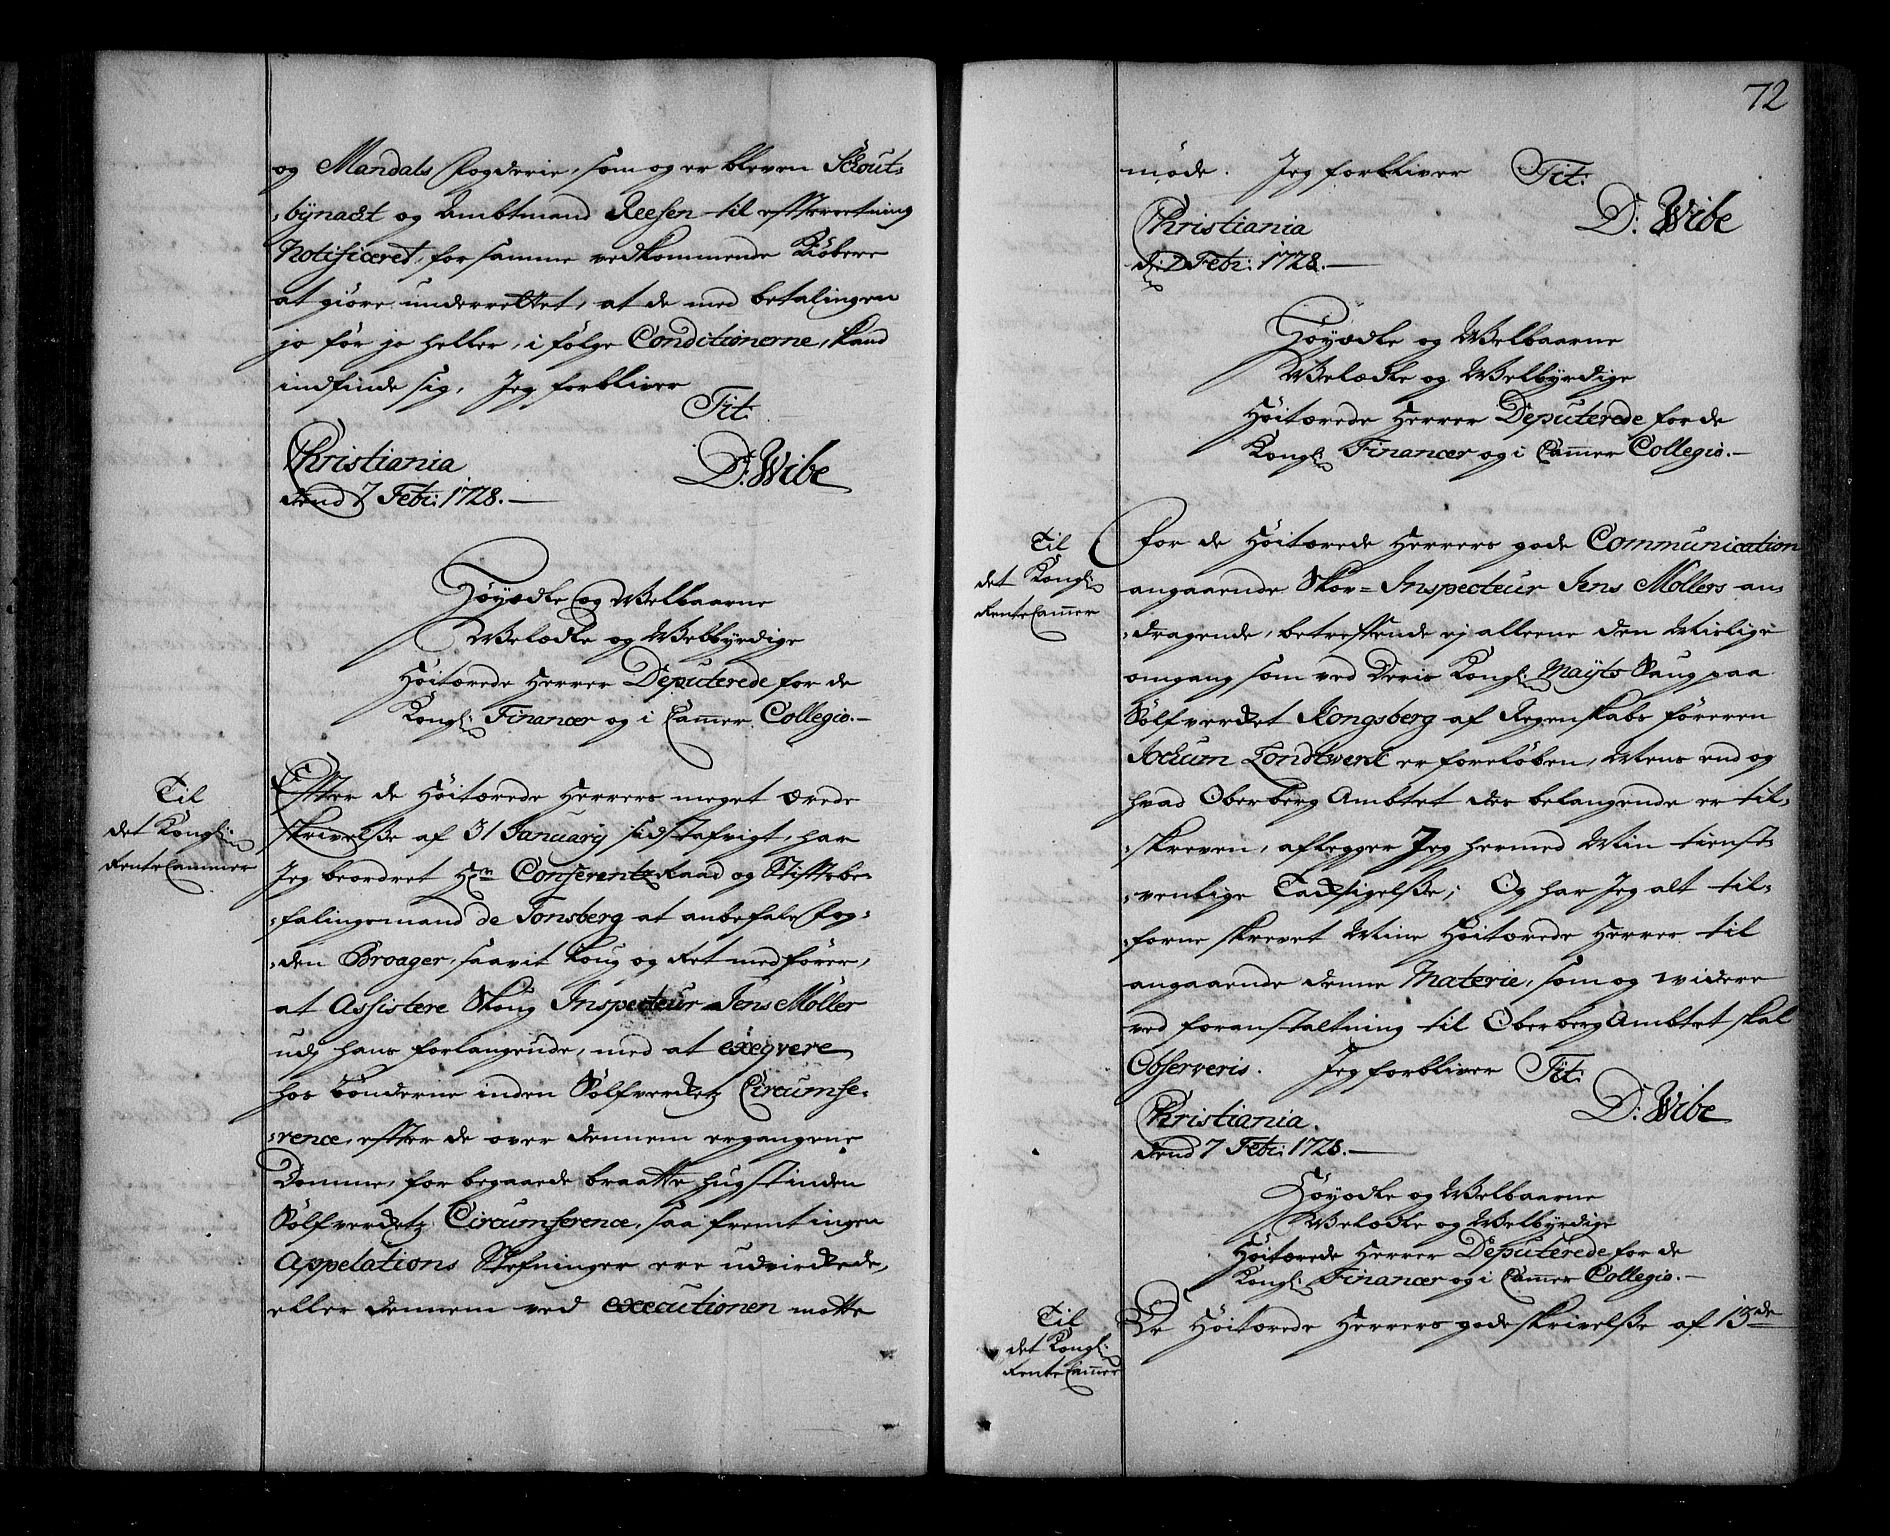 og Mandals Fogderie, som og er bleven Schout-
:bÿnacht og Ambtmand Reesen til effterretning
Notificeret, for samme vedkommende Kiøbere
at giøre underrettet, at de med betalingen
jo før jo heller, i følge Conditionerne, kand
indfinde sig, Jeg forbliver
Tit:
Christiania
dend 7 Febr: 1728.
D: Wibe
Høyædle og Welbaarne
Welædle og Welbÿrdige
Høitærede Herrer Deputerede for de
Kongl: Financer og i Cammer Collegio.
Til
det Kongl:
Rente Cammer
Effter de Høitærede Herrers meget ærede
skrivelsse af 31 January sidstafvigt, har
Jeg beordret Hr Conferentz Raad og Stiftsbe-
:falingsmand de Tonsberg at anbefale Fog-
:den Broager, saavit Loug og Ret medfører,
at Assistere Skoug Inspecteur Jens Møller
udj hans forlangende, med at exeqvere
hos bønderne inden Sølfverketz Circumfe-
:rence, effter de over dennem ergangene
Domme, for begaaede braatte hugst inden
Sølfverketz Circumference, saa fremt ingen
Appelations Stefninger ere udvirkede,
eller dennem ved executionen motte
72
møde. Jeg forbliver Tit:
Christiania
d: 7 Febr: 1728.
D: Wibe
Høyædle og Welbaarne
Welædle og Welbÿrdige
Høitærede Herrer Deputerede for de
Kongl: Financer og i Cammer Collegio.
Til
det Kongl:
Rente Cammer
For de Høitærede Herrers gode Communication
angaaende Skov-Inspecteur Jens Møllers an-
:dragende, betreffende ej alleene den Mislige
omgang som ved Deris Kongl: Maÿts Saug paa
Sølfverket Kongsberg af Regenskabs føreren
Jochum er foreløben, Mens end og
hvad Oberberg Ambtet des belangende er til-
:skreven, aflegger Jeg hermed Min tienst-
:venlige Tacksigelsse; Og har Jeg alt til-
:forne skrevet Mine Høitærede Herrer til
angaaende denne Materie, som og widere
ved foranstaltning til Oberberg Ambtet skal
Observeris. Jeg forbliver Tit:
Christiania.
dend 7 Febr: 1728.
D: Wibe
Høyædle og Welbaarne
Welædle og Welbÿrdige
Høitærede Herrer Deputerede for de
Kongl: Financer og i Cammer Collegio.
Til
det Kongl:
Rente Cammer
De Høitærede Herrers gode skrivelsse af 13de